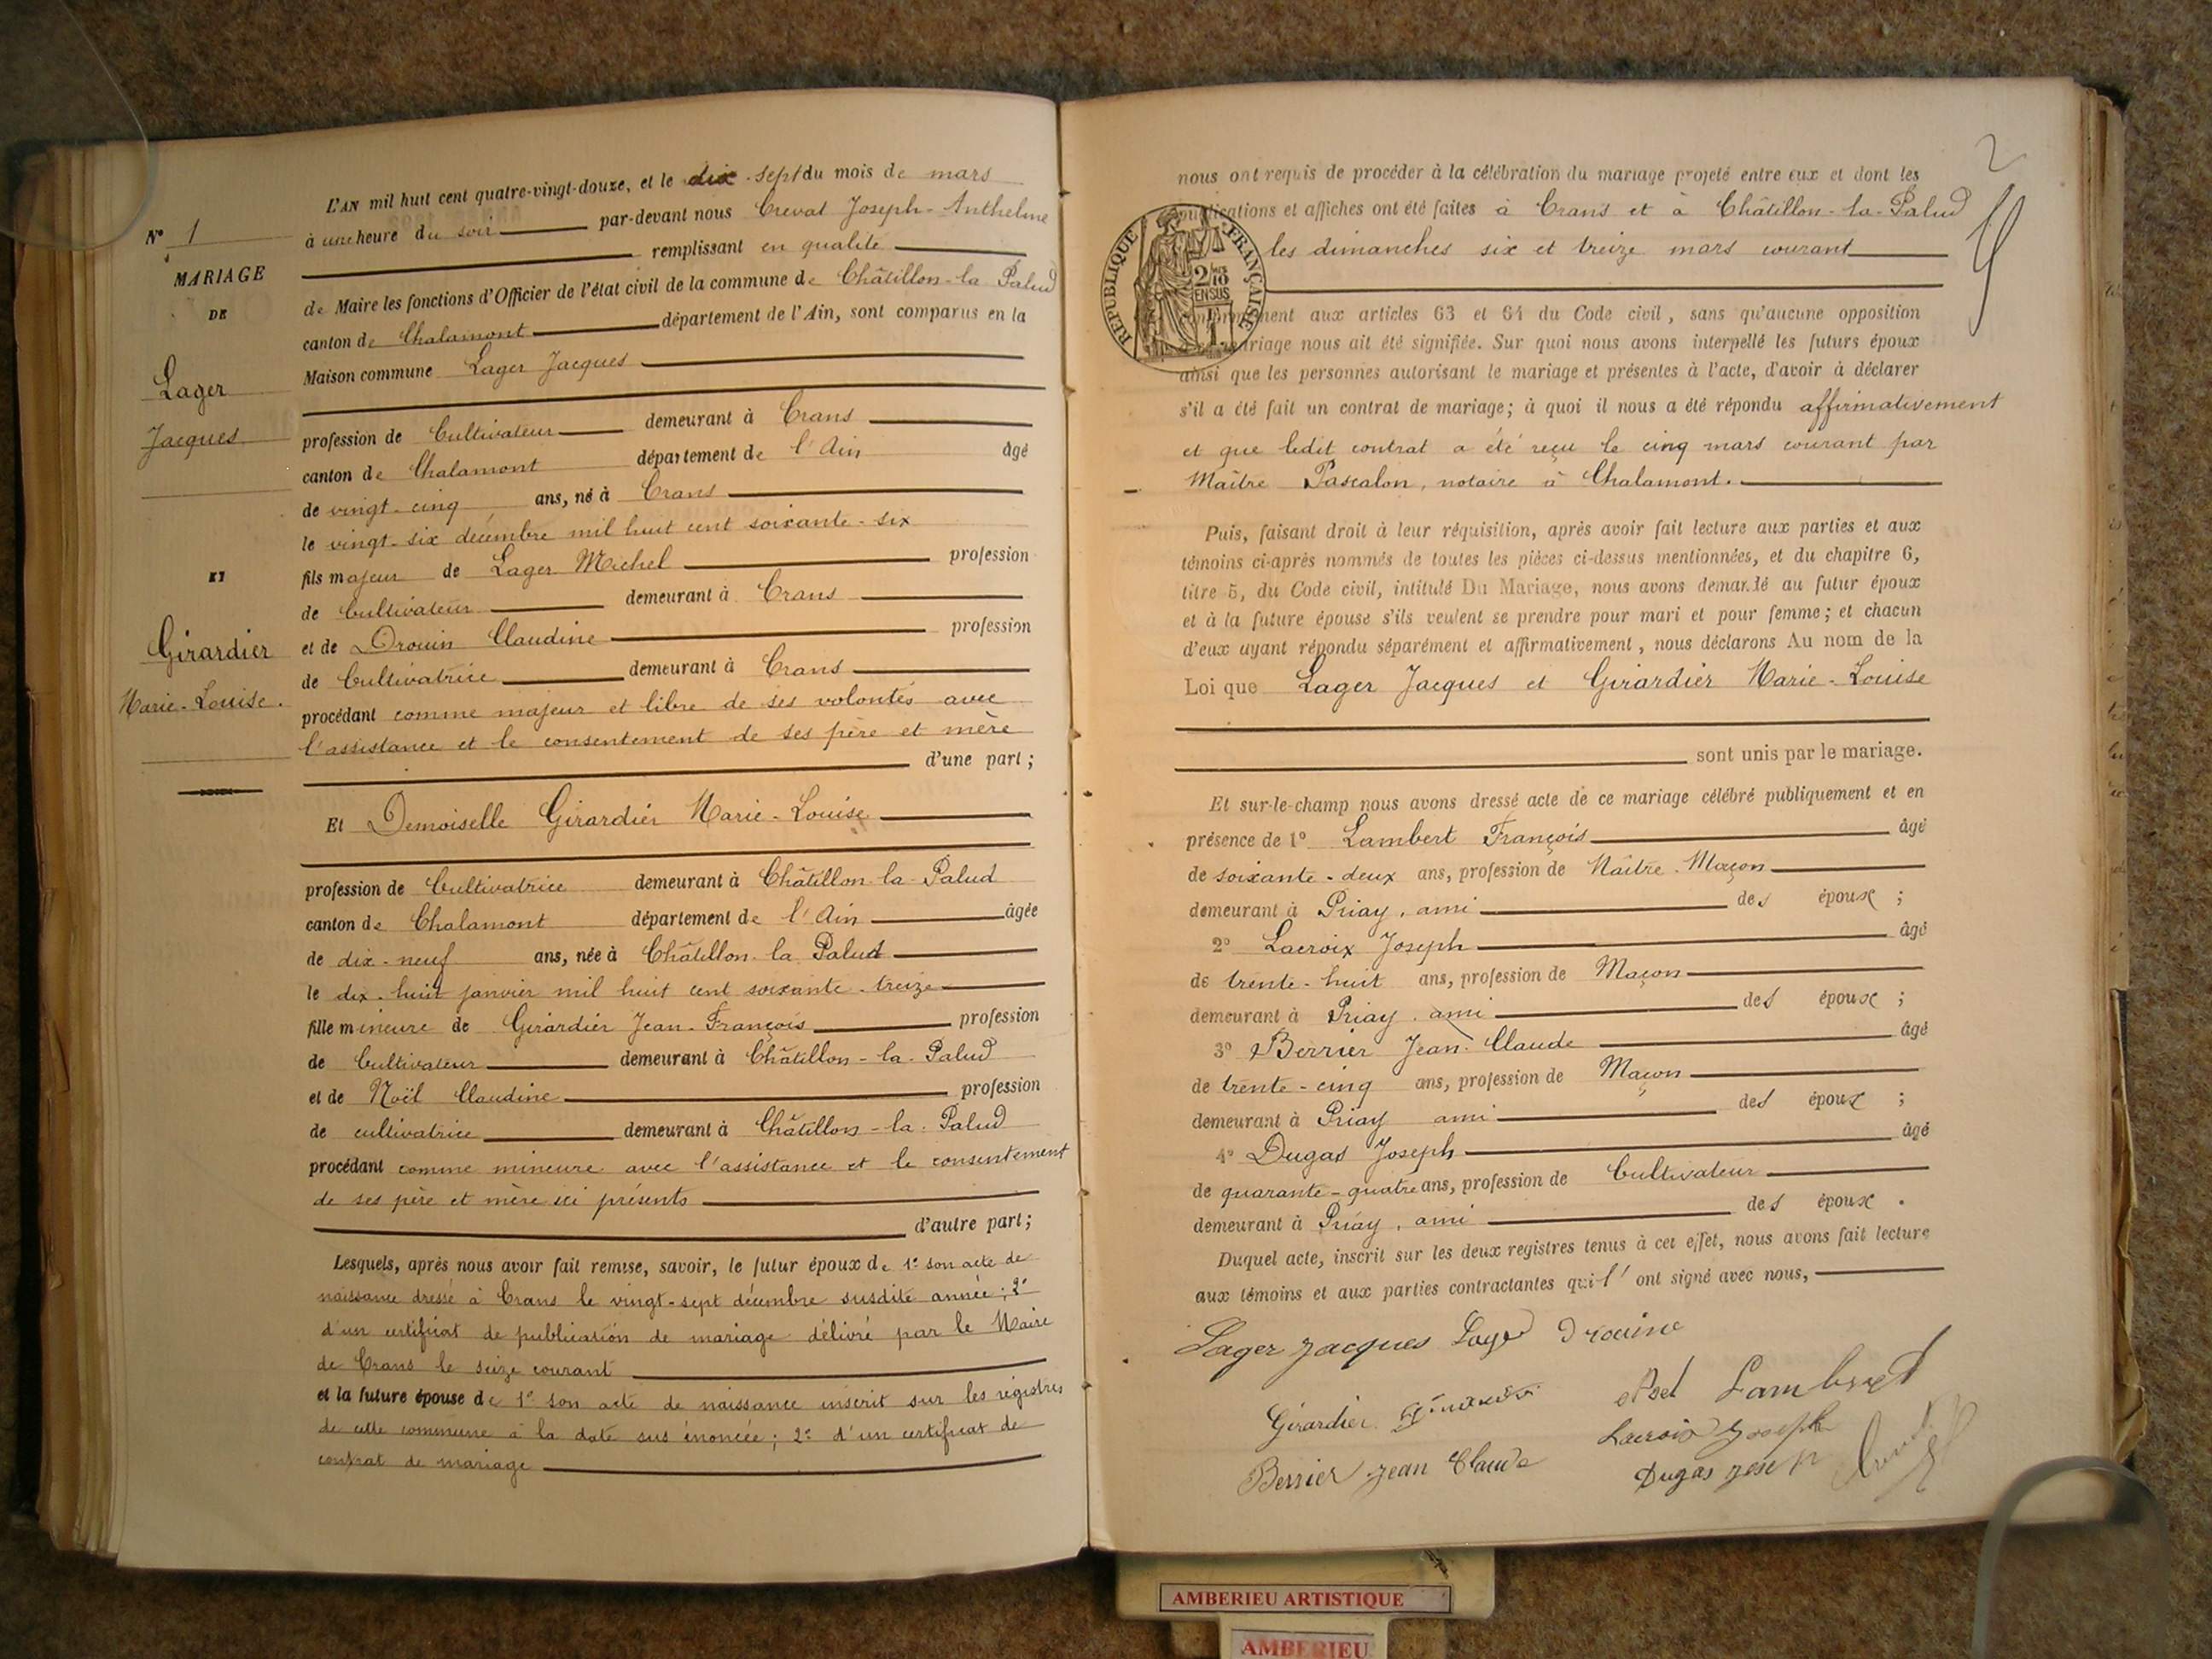 N° 1
MARIAGE
DE
Lager
Jacques
ET
Girardier
Marie-Louise.
L'AN mil huit cent quatre-vingt-douze, et le dix-sept du mois de mars
à une heure du soir par-devant nous Creval Joseph-Anthelme
remplissant en qualité
de Maire les fonctions d'Officier de l'état civil de la commune de Châtillon-la Palud
canton de Chalamont département de l'Ain, sont comparus en la
Maison commune Lager Jacques
profession de Cultivateur demeurant à Crans
canton de Chalamont département de l'Ain âgé
de vingt-cinq ans, né à Crans
le vingt-six décembre mil huit cent soixante-six
fils majeur de Lager Michel profession
de Cultivateur demeurant à Crans
et de Drouin Claudine profession
de Cultivatrice demeurant à Crans
procédant comme majeur et libre de ses volontés avec
l'assistance et le consentement de ses père et mère
d'une part;
Et Demoiselle Girardier Marie-Louise
profession de Cultivatrice demeurant à Châtillon-la-Palud
canton de Chalamont département de l'Ain âgée
de dix-neuf ans, née à Châtillon-la Palud
le dix-huit janvier mil huit cent soixante-treize
fille mineure de Girardier Jean-François profession
de Cultivateur demeurant à Châtillon-la-Palud
et de Noël Claudine profession
de cultivatrice demeurant à Châtillon-la-Palud
procédant comme mineure avec l'assistance et le consentement
de ses père et mère ici présents
d'autre part;
Lesquels, après nous avoir fait remise, savoir, le futur époux de 1° son acte de
naissance dressé à Crans le vingt-sept décembre susdite année; 2°
d'un certificat de publication de mariage délivré par le Maire
de Crans le seize courant
et la future épouse de 1° son acte de naissance inscrit sur les registres
de cette commune à la date sus énoncée; 2° d'un certificat de
contrat de mariage
2
nous ont requis de procéder à la célébration du mariage projeté entre eux et dont les
publications et affiches ont été faites à Crans et à Châtillon-la-Palud
les dimanches six et treize mars courant
RÉPUBLIQUE FRANÇAISE
2/10 EN SUS
conformément aux articles 63 et 64 du Code civil, sans qu'aucune opposition
mariage nous ait été signifiée. Sur quoi nous avons interpellé les futurs époux
ainsi que les personnes autorisant le mariage et présentes à l'acte, d'avoir à déclarer
s'il a été fait un contrat de mariage; à quoi il nous a été répondu affirmativement
et que ledit contrat a été reçu le cinq mars courant par
Maître Pascalon, notaire à Chalamont.
Puis, faisant droit à leur réquisition, après avoir fait lecture aux parties et aux
témoins ci-après nommés de toutes les pièces ci-dessus mentionnées, et du chapitre 6,
titre 5, du Code civil, intitulé Du Mariage, nous avons demandé au futur époux
et à la future épouse s'ils veulent se prendre pour mari et pour femme; et chacun
d'eux ayant répondu séparément et affirmativement, nous déclarons Au nom de la
Loi que Lager Jacques et Girardier Marie-Louise
sont unis par le mariage.
Et sur-le-champ nous avons dressé acte de ce mariage célébré publiquement et en
présence de 1° Lambert François âgé
de soixante-deux ans, profession de Maître-Maçon
demeurant à Priay, ami des époux;
2° Lacroix Joseph âgé
de trente-huit ans, profession de Maçon
demeurant à Priay, ami des époux;
3° Berrier Jean-Claude âgé
de trente-cinq ans, profession de Maçon
demeurant à Priay ami des époux;
4° Dugas Joseph âgé
de quarante-quatre ans, profession de Cultivateur
demeurant à Priay, ami des époux.
Duquel acte, inscrit sur les deux registres tenus à cet effet, nous avons fait lecture
aux témoins et aux parties contractantes qui l'ont signé avec nous,
Lager Jacques Lager Drouine
Girardier Lambert
Lacroix Joseph
Berrier Jean Claude Dugas
AMBERIEU ARTISTIQUE
AMBERIEU